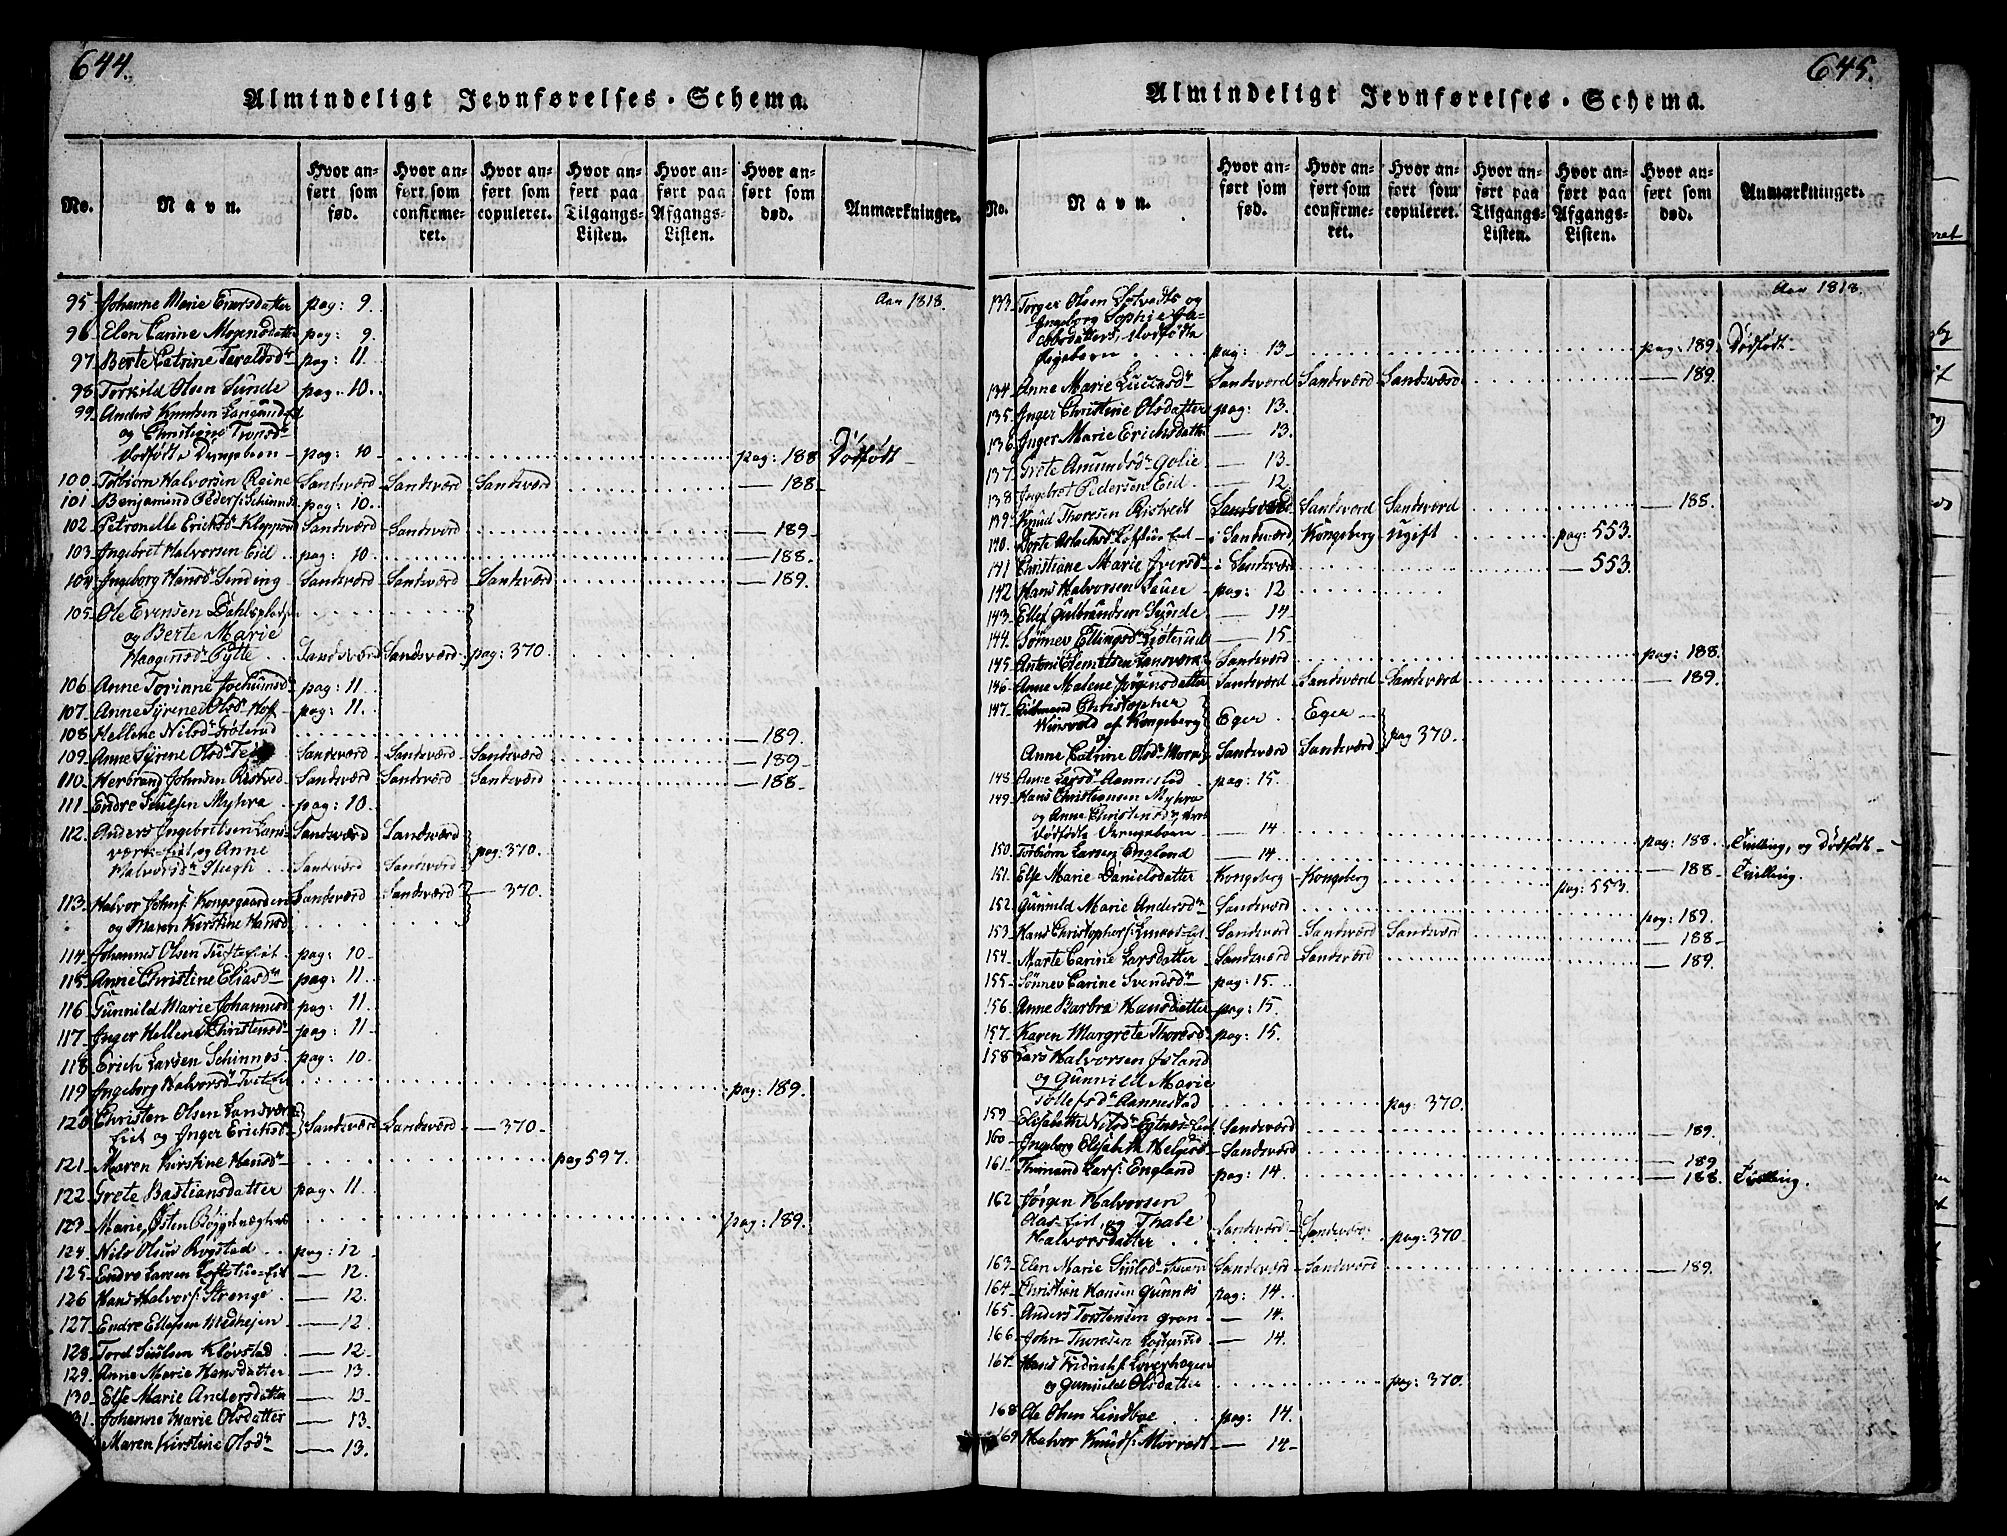 644.
Almindeligt Jevnførelses-Schema.
No.
Navn.
Hvor anført som fød.
Hvor anført som confirmeret.
Hvor anført som copuleret.
Hvor anført paa Tilgangs-Listen.
Hvor anført paa Afgangs-Listen.
Hvor anført som død.
Anmærkninger.
Aar 1818.
95 Johanne Marie Enersdatter pag: 9.
96 Elen Carine Mogensdatter pag: 9.
97 Berte Catrine Taraldsdr pag: 11.
98 Torkild Olsen Sunde pag: 10.
99 Anders Knudsen Langrindfel
og Christiane Tronsd
dødfødte Drengebarn pag: 10 pag: 188 Dødfødt
100 Torbiørn Halvorsen Reine Sandsværd Sandsværd Sandsværd 188
101 Benjamind Peders: Schinnes pag: 10.
102 Petronelle Ericksdr Kloppen Sandsværd Sandsværd 189
103 Ingebret Halvorsen Eid pag: 10 188
104 Ingeborg Hansdr Sinding Sandsværd Sandsværd Sandsværd 189
105 Ole Evensen Dahlsplads
og Berte Marie
Haagensdr Pytte Sandsværd Sandsværd pag: 370
106 Anne Torinne Jochumsd pag: 11.
107 Anne Syrene Olsdr Hof pag: 11.
108 Hellene Nilsdr Grøterud 189
109 Anne Syrene Olsdr Sandsværd Sandsværd Sandsværd 189
110 Herbrand Johnsen Ristved Sandsværd Sandsværd Sandsværd 188
111 Endre Siulsen Myhra pag: 10
112 Anders Ingebritsen Lans= Sandsværd Sandsværd
værk-eiet, og Anne pag: 370.
Halvorsdr Hugh Sandsværd Sandsværd
113 Halvor Johns: Kongsgaarden Sandsværd Sandsværd 370.
og Maren Kirstine Hansd
114 Johannes Olsen Tufte-Eiet pag: 10
115 Anne Christine Eliasdr pag: 11
116 Gunnild Marie Johannesd pag: 11.
117 Inger Hellene Christensd pag: 11
118 Erich Larsen Schinnes pag: 10.
119 Ingeborg Halvorsdr Tvet-Ei pag: 189.
120 Christen Olsen Landværk
Eiet og Inger Ericksdr Sandsværd Sandsværd 370
121 Maren Kirstine Hansdr pag 597.
122 Grete Bastiansdatter pag: 11
123 Marie Østen Bøygdnæghus pag: 189.
124 Nils Olsen Rogstad pag: 12
125 Endre Larsen Loftstue-Eie 12.
126 Hans Halvors: Strenge 12.
127 Endre Ellefsen Medhejen 12.
128 Tord Siulsen Kløvstad 12
129 Anne Marie Hansdatter 13.
130 Else Marie Andersdatter 13
131 Johanne Marie Olsdatter 13.
Maren Kirstine Olsdr 13.
645.
Almindeligt Jevnførelses-Schema.
No.
Navn.
Hvor anført som fød.
Hvor anført som confirmeret.
Hvor anført som copuleret.
Hvor anført paa Tilgangs-Listen.
Hvor anført paa Afgangs-Listen.
Hvor anført som død.
Anmærkninger.
Aar 1818.
133 Torger Olsen Sotvedts og
Ingeborg Sophie Ja-
cobsdatters, dødfødte
Pigebarn pag: 13 pag: 189. Dødfødt
134 Anne Marie Lucasdr Sandsværd Sandsværd Sandsværd 189.
135 Inger Christine Olsdatter pag: 13.
136 Inger Marie Erichsdatter 13.
137 Grete Amundsdr Golie 13
138 Ingebret Pedersen Eid 12
139 Knud Thoresen Ristvedt Sandsværd Sandsværd Sandsværd 188.
140 Dorte Aslachsdr Loftstue-Eiet i Sandsværd Kongsberg Ugift pag: 553.
141 Christiane Marie Iversd i Sandsværd 553.
142 Hans Halvorsen Sauer pag: 12
143 Ellef Gulbrandsen Sunde 14
144 Sønnev Ellingsdr Grøterud 15
145 Antoni Clemetsen Lansværk Sandsværd pag: 188.
146 Anne Malene Jørgensdatter Sandsværd Sandsværd Sandsværd 189.
147 Christopher
Winsvold af Kongsberg Eger Eger
og pag 370.
Anne Catrine Olsdr Moen Sandsværd Sandsværd
148 Anne Larsdr Aannestad pag: 15.
149 Hans Christensen Myhra
og Anne Christens
dødfødte Drengebarn 14 pag: 188. Tvilling, og Dødfødt
150 Torbiørn Larsen England 14 188 Tvilling.
151 Else Marie Danielsdatter Kongsberg Kongsberg pag: 553.
152 Gunnild Marie Andersdr Sandsværd pag: 189.
153 Hans Christophers: Sandsværd Sandsværd Sandsværd 188
154 Marte Carine Larsdatter Sandsværd Sandsværd 189.
155 Sønnev Carine Svendsdr pag: 15.
156 Anne Barbra Hansdatter pag: 15.
157 Karen Margrete Thoresd pag: 15.
158 Lars Halvorsen Island
og Gunnild Marie
Tollefsdr Aannestad pag: 370.
159 Elisabeth Nilsdr Egtnes-Eiet Sandsværd 189.
160 Ingeborg Elisabeth Helgesd Sandsværd 189
161 Thrinand Lars: England pag: 14. 188. Tvilling.
162 Jørgen Halvorsen
Aas-Eiet, og Thale
Halvorsdatter Sandsværd Sandsvær pag: 370
163 Elen Marie Siulsdr Sandsværd Sandsværd 189.
164 Christian Hansen Gunnes pag: 14
165 Anders Torstensen Gran 14.
166 John Thoresen Løgerud 14.
167 Hans Fridrich: Løverhagen
og Gunnild Olsdatter pag: 370.
168 Ole Olsen Lindboe pag: 14.
169 Halvor Knuds: Morvedt 14